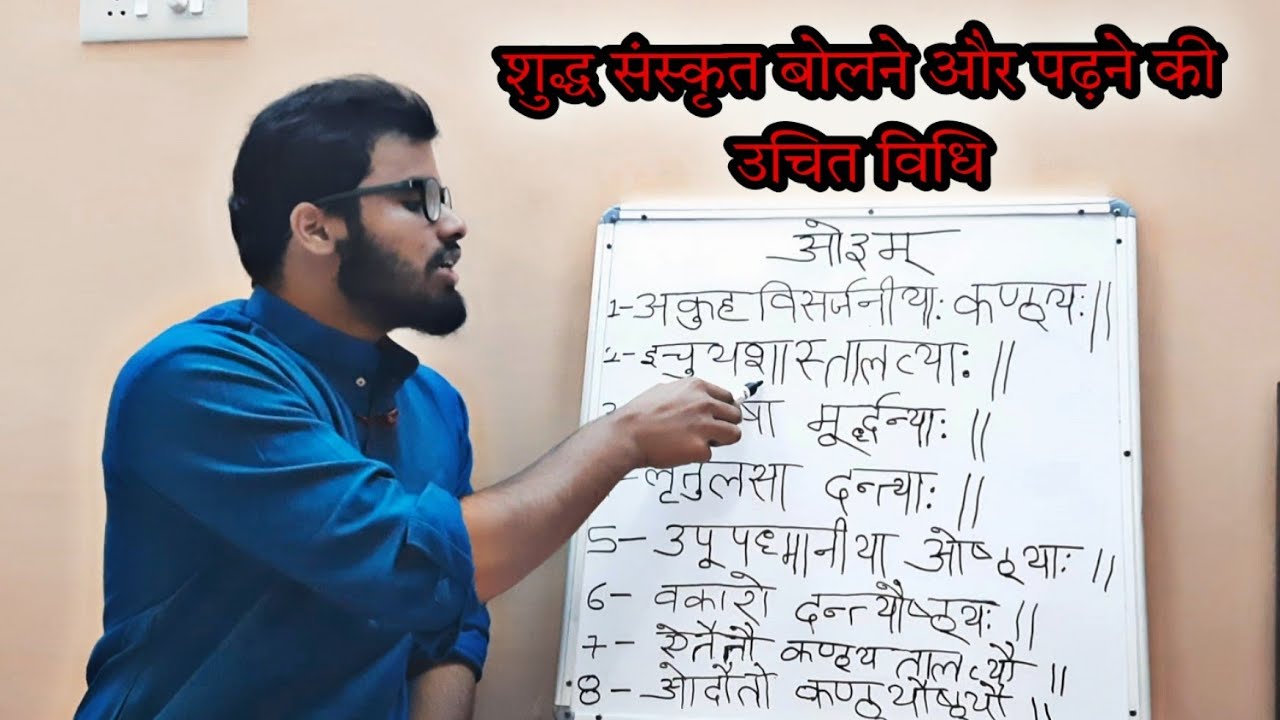 शुद्ध संस्कृत बोलने और पढ़ने की
उचित विधि
ओ३म्
1-अकुह विसर्जनीयाः कण्ठ्यः||
2-इचुयशास्तालव्याः ||
षा मूर्द्धन्याः ||
लृतुलसा दन्त्याः ||
5- उपूपध्मानीया ओष्ठ्याः ||
6- वकारो दन्त्यौष्ठ्यः ||
7- एतैतौ कण्ठ्य तालव्यौ ||
8- ओदौतो कण्ठ्यौष्ठ्यौ ||